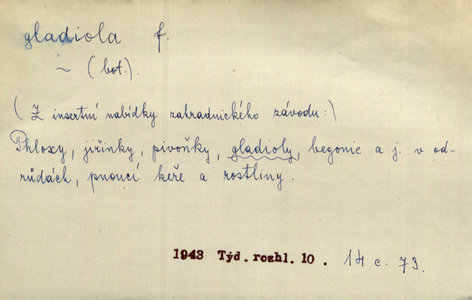 gladiola f.
~ (bot.).
(Z insertní nabídky zahradnického závodu:)
Phloxy, jiřinky, pivoňky, gladioly, begonie a j. v od-
růdách, pnoucí keře a rostliny.
1943 Týd. rozhl. 10. 14 c. 73.